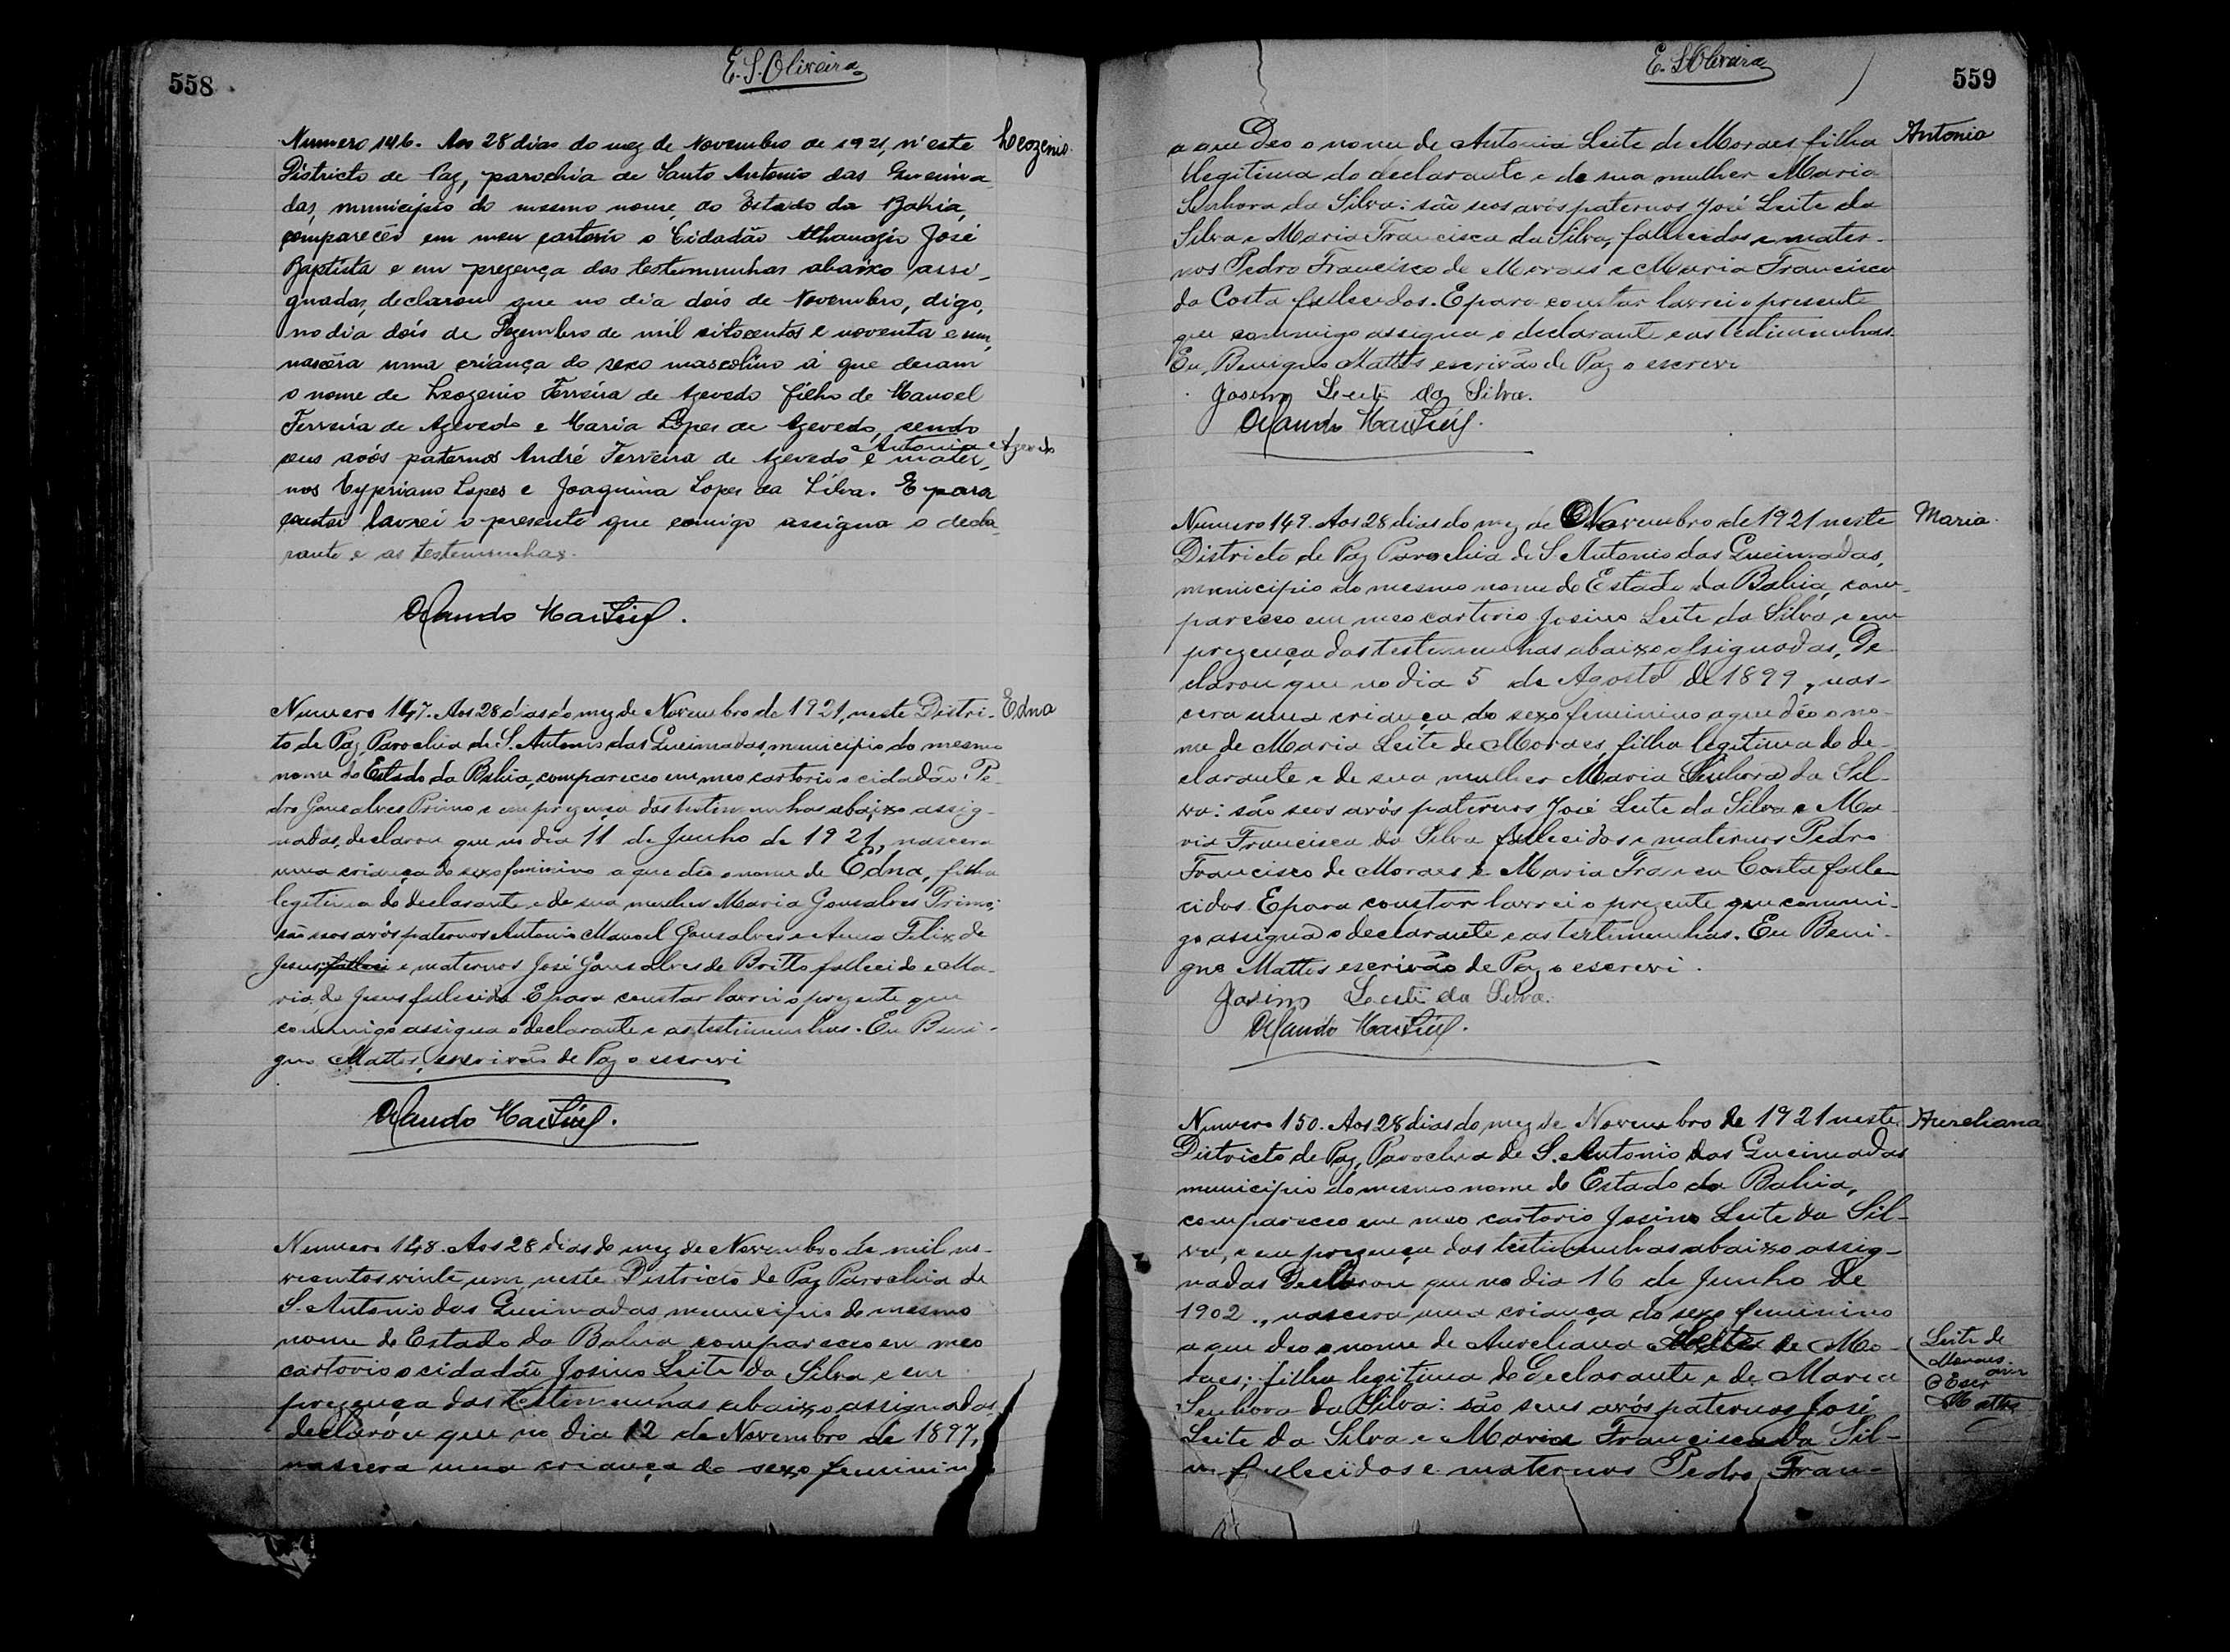 558
E. S. Oliveira
Numero 146. Aos 28 dias do mez de Novembro de 1921, n'este
Leozenio.
Districto de Paz, parochia de Santo Antonio das Queima
das, municipio do mesmo nome, do Estado da Bahia,
compareceu em meu cartorio o Cidadão Athanazio José
Baptista e em prezença das testemunhas abaixo assi-
gnadas, declarou que no dia dois de Novembro, digo,
no dia dois de Dezembro de mil oitocentos e noventa e um,
nascêra uma criança do sexo mascolino á que deram
o nome de Leozenio Ferreira de Azevedo filho de Manoel
Ferreira de Azevedo e Maria Lopes de Azevedo, sendo
Antonia e Azevedo
seus avós paternos André Ferreira de Azevedo e mater-
nos Cypriano Lopes e Joaquina Lopes da Silva. E para
constar lavrei o presente que comigo assigna o decla-
rante e as testemunhas.
Orlando
Numero 147. Aos 28 dias do mez de Novembro de 1921, neste Distri-
Edna
to de Paz, Parochia de S. Antonio das Queimadas, municipio do mesmo
nome do Estado da Bahia, compareceo em meo cartorio o cidadão Pe-
dro Gonsalves Primo e em prezença das testemunhas abaixo assig-
nadas, declarou que no dia 11 de Junho de 1921, nascera
uma criança do sexo feminino a que deo o nome de Edna, filha
legitima do declarante e de sua mulher Maria Gonsalves Primo;
são seos avós paternos Antonio Manoel Gonsalves e Anna Felix de
Jesus, e maternos José Gonsalves de Britto fallecido e Ma-
ria de Jesus fallecida. E para constar lavrei o prezente que
commigo assigna o declarante e as testemunhas. Eu Beni-
gno Mattos, escrivão de Paz o escrevi
Orlando
Numero 148. Aos 28 dias do mez de Novembro de mil no-
vecentos vinte um, neste Districto de Paz Parochia de
S. Antonio das Queimadas, municipio do mesmo
nome do Estado da Bahia, compareceo em meo
cartorio o cidadão Josino Leite da Silva e em
prezença das testemunhas abaixo assignadas,
declarou que no dia 12 de Novembro de 1897,
nascera uma criança do sexo feminino
E. S. Oliveira
559
a que deo o nome de Antonia Leite de Moraes, filha
Antonia
legitima do declarante e de sua mulher Maria
Senhora da Silva: são seos avós paternos José Leite da
Silva e Maria Francisca da Silva, fallecidos e mater-
nos Pedro Francisco de Moraes e Maria Francisca
da Costa fallecidos. E para constar lavrei o presente
que commigo assigna o declarante e as testemunhas.
Eu, Benigno Mattos escrivão de Paz o escrevi
Josino Leite da Silva.
Orlando
Numero 149. Aos 28 dias do mez de Novembro de 1921 neste
Maria.
Districto de Paz Parochia de S. Antonio das Queimadas,
municipio do mesmo nome do Estado da Bahia, com-
pareceo em meo cartorio Josino Leite da Silva e em
prezença das testemunhas abaixo assignadas, De
clarou que no dia 5 de Agosto de 1899, nas-
cera uma criança do sexo feminino a que dêo o no-
me de Maria Leite de Moraes, filha legitima do de-
clarante e de sua mulher Maria Senhora da Sil-
va: são seos avós paternos José Leite da Silva e Ma-
ria Francisca da Silva fallecidos e maternos Pedro
Francisco de Moraes e Maria Costa falle
cidos. E para constar lavrei o prezente que commi-
go assigna o declarante e as testemunhas. Eu Beni-
gno Mattos escrivão de Paz o escrevi.
Josino Leite da Silva.
Orlando
Numero 150. Aos 28 dias do mez de Novembro de 1921 neste
Aureliana
Districto de Paz, Parochia de S. Antonio das Queimadas
municipio do mesmo nome do Estado da Bahia,
compareceo em meo cartorio Josino Leite da Sil-
va, e em prezença das testemunhas abaixo assig-
nadas Declarou que no dia 16 de Junho de
1902, nascera uma criança do sexo feminino
a que deo o nome de Aureliana Leite de Mo-
Leite de
Moraes
raes; filha legitima do Declarante e de Maria
O Escr
Senhora da Silva: são seus avós paternos José
Mattos
Leite da Silva e Maria Francisca da Sil-
va fallecidos e maternos Pedro Fran-